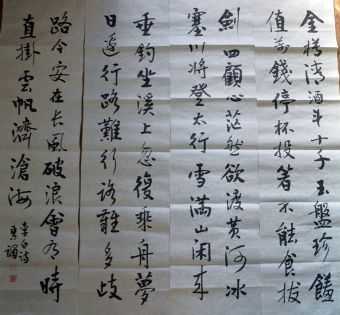 金樽清酒斗十千玉盤珍饈
值萬錢停杯投箸不能食拔
劍四顧心茫然欲渡黃河冰
塞川將登太行雪滿山閑來
垂釣坐溪上忽復乘舟夢
日邊行路難行路難多歧
路今安在長風破浪會有時
直掛雲帆濟滄海
李白詩